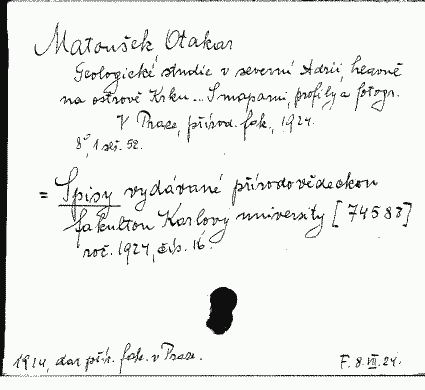 Matoušek Otakar
Geologické studie v severní Adrii, hlavně
na ostrově Krku... S mapami, profily a fotogr.
V Praze, přírod. fak., 1924.
8°, 1 seš. 52.
= Spisy vydávané přírodovědeckou
fakultou Karlovy university [74588]
roč. 1924, čís. 16.
1914, dar přír. fak. v Praze.
F. 8. VII. 24.